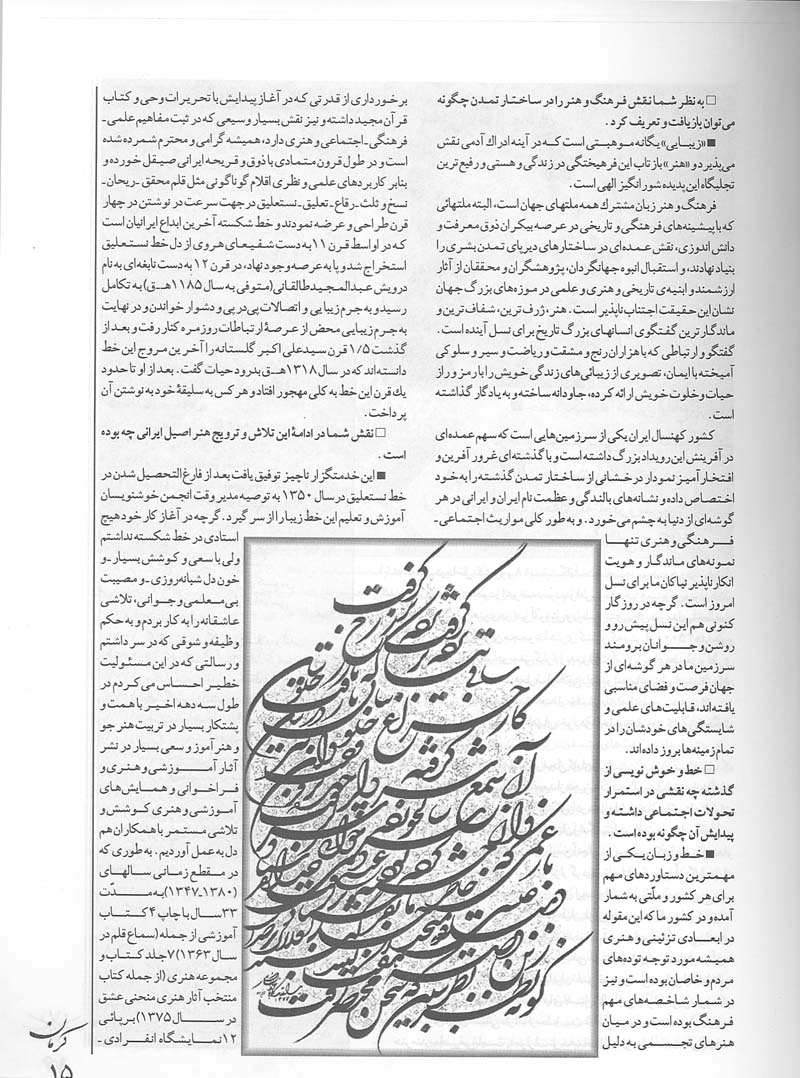 □ به نظر شما نقش فرهنگ و هنر را در ساختار تمدن چگونه
می‌توان بازیافت و تعریف کرد.
■ «زیبایی» یگانه موهبتی است که در آینه ادراك آدمی نقش
می‌پذیرد و «هنر» بازتاب این فرهیختگی در زندگی و هستی و رفیع‌ترین
تجلیگاه این پدیده شورانگیز الهی است.
فرهنگ و هنر زبان مشترك همه ملتهای جهان است، البته ملتهائی
که با پیشینه‌های فرهنگی و تاریخی در عرصه بیکران ذوق معرفت و
دانش اندوزی، نقش عمده‌ای در ساختارهای دیرپای تمدن بشری را
بنیاد نهادند، و استقبال انبوه جهانگردان، پژوهشگران و محققان از آثار
ارزشمند و ابنیه‌ی تاریخی و هنری و علمی در موزه‌های بزرگ جهان
نشان این حقیقت اجتناب ناپذیر است. هنر، ژرف‌ترین، شفاف‌ترین و
ماندگارترین گفتگوی انسانهای بزرگ تاریخ برای نسل آینده است.
گفتگو و ارتباطی که با هزاران رنج و مشقت و ریاضت و سیر و سلوکی
آمیخته با ایمان، تصویری از زیبائی‌های زندگی خویش را با رمز و راز
حیات و خلوت خویش ارائه کرده، جاودانه ساخته و به یادگار گذاشته
است.
کشور کهنسال ایران یکی از سرزمین‌هایی است که سهم عمده‌ای
در آفرینش این رویداد بزرگ داشته است و با گذشته‌ای غرور آفرین و
افتخار آمیز نمودار درخشانی از ساختار تمدن گذشته را به خود
اختصاص داده و نشانه‌های بالندگی و عظمت نام ایران و ایرانی در هر
گوشه‌ای از دنیا به چشم می‌خورد. و به طور کلی مواریث اجتماعی ـ
فرهنگی و هنری تنها
نمونه‌های ماندگار و هویت
انکارناپذیر نیاکان ما برای نسل
امروز است. گرچه در روزگار
کنونی هم این نسل پیش رو و
روشن و جوانان برومند
سرزمین ما در هر گوشه‌ای از
جهان فرصت و فضای مناسبی
یافته‌اند، قابلیت‌های علمی و
شایستگی‌های خودشان را در
تمام زمینه‌ها بروز داده‌اند.
□ خط و خوش نویسی از
گذشته چه نقشی در استمرار
تحولات اجتماعی داشته و
پیدایش آن چگونه بوده است.
■ خط و زبان یکی از
مهمترین دستاوردهای مهم
برای هر کشور و ملتی به شمار
آمده و در کشور ما که این مقوله
در ابعادی تزئینی و هنری
همیشه مورد توجه توده‌های
مردم و خاصان بوده است و نیز
در شمار شاخصه‌های مهم
فرهنگ بوده است و در میان
هنرهای تجسمی به دلیل
برخورداری از قدرتی که در آغاز پیدایش با تحریرات وحی و کتاب
قرآن مجید داشته و نیز نقش بسیار وسیعی که در ثبت مفاهیم علمی ـ
فرهنگی ـ اجتماعی و هنری دارد، همیشه گرامی و محترم شمرده شده
است و در طول قرون متمادی با ذوق و قریحه ایرانی صیقل خورده و
بنابر کاربردهای علمی و نظری اقلام گوناگونی مثل قلم محقق ـ ریحان ـ
نسخ و ثلث ـ رقاع ـ تعلیق ـ نستعلیق در جهت سرعت در نوشتن در چهار
قرن طراحی و عرضه نمودند و خط شکسته آخرین ابداع ایرانیان است
که در اواسط قرن ۱۱ به دست شفیعای هروی از دل خط نستعلیق
استخراج شد و پا به عرصه وجود نهاد، در قرن ۱۲ به دست نابغه‌ای به نام
درویش عبدالمجید طالقانی (متوفی به سال ۱۱۸۵ هـ ـ ق) به تکامل
رسید و به جرم زیبایی و اتصالات پی در پی و دشوار خواندن و در نهایت
به جرم زیبایی محض از عرصهٔ ارتباطات روزمره کنار رفت و بعد از
گذشت ۱/۵ قرن سید علی اکبر گلستانه را آخرین مروج این خط
دانسته‌اند که در سال ۱۳۱۸ هـ ـ ق بدرود حیات گفت. بعد از او تا حدود
یك قرن این خط به کلی مهجور افتاد و هر کس به سلیقهٔ خود به نوشتن آن
پرداخت.
□ نقش شما در ادامهٔ این تلاش و ترویج هنر اصیل ایرانی چه بوده
است.
■ این خدمتگزار ناچیز توفیق یافت بعد از فارغ التحصیل شدن در
خط نستعلیق در سال ۱۳۵۰ به توصیه مدیر وقت انجمن خوشنویسان
آموزش و تعلیم این خط زیبا را از سر گیرد. گرچه در آغاز کار خود هیچ
استادی در خط شکسته نداشتم
ولی با سعی و کوشش بسیار ـ و
خون دل شبانه‌روزی ـ و مصیبت
بی‌معلمی و جوانی، تلاشی
عاشقانه را به کار بردم و به حکم
وظیفه و شوقی که در سر داشتم
و رسالتی که در این مسئولیت
خطیر احساس می‌کردم در
طول سه دهه اخیر با همت و
پشتکار بسیار در تربیت هنرجو
و هنرآموز و سعی بسیار در نشر
آثار آموزشی و هنری و
فراخوانی و همایش‌های
آموزشی و هنری کوشش و
تلاشی مستمر با همکاران هم
دل به عمل آوردیم. به طوری که
در مقطع زمانی سالهای
(۱۳۸۰ـ۱۳۴۷) به مدّت
۳۳ سال با چاپ ۴ کتاب
آموزشی از جمله (سماع قلم در
سال ۱۳۶۳) ۷ جلد کتاب و
مجموعه هنری (از جمله کتاب
منتخب آثار هنری منحنی عشق
در سال ۱۳۷۵) برپائی
۱۲ نمایشگاه انفرادی ـ
کرمان
۱۵